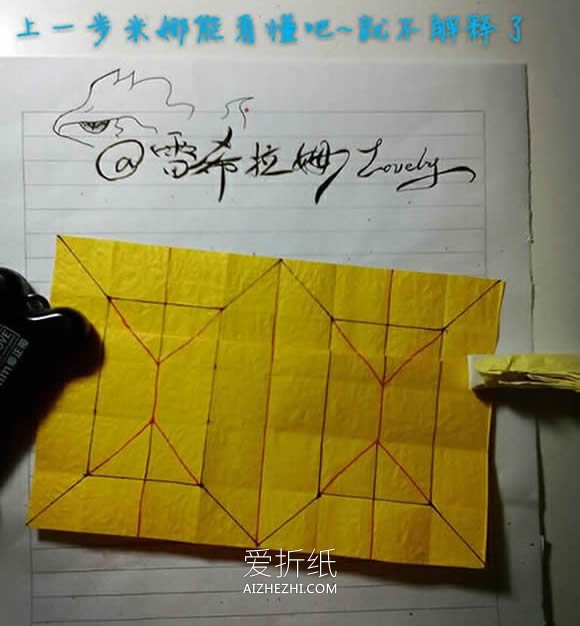 上一步米娜能看懂吧~就不解释了
@雷希拉姆Lovely
爱折纸
AIZHEZHI.COM